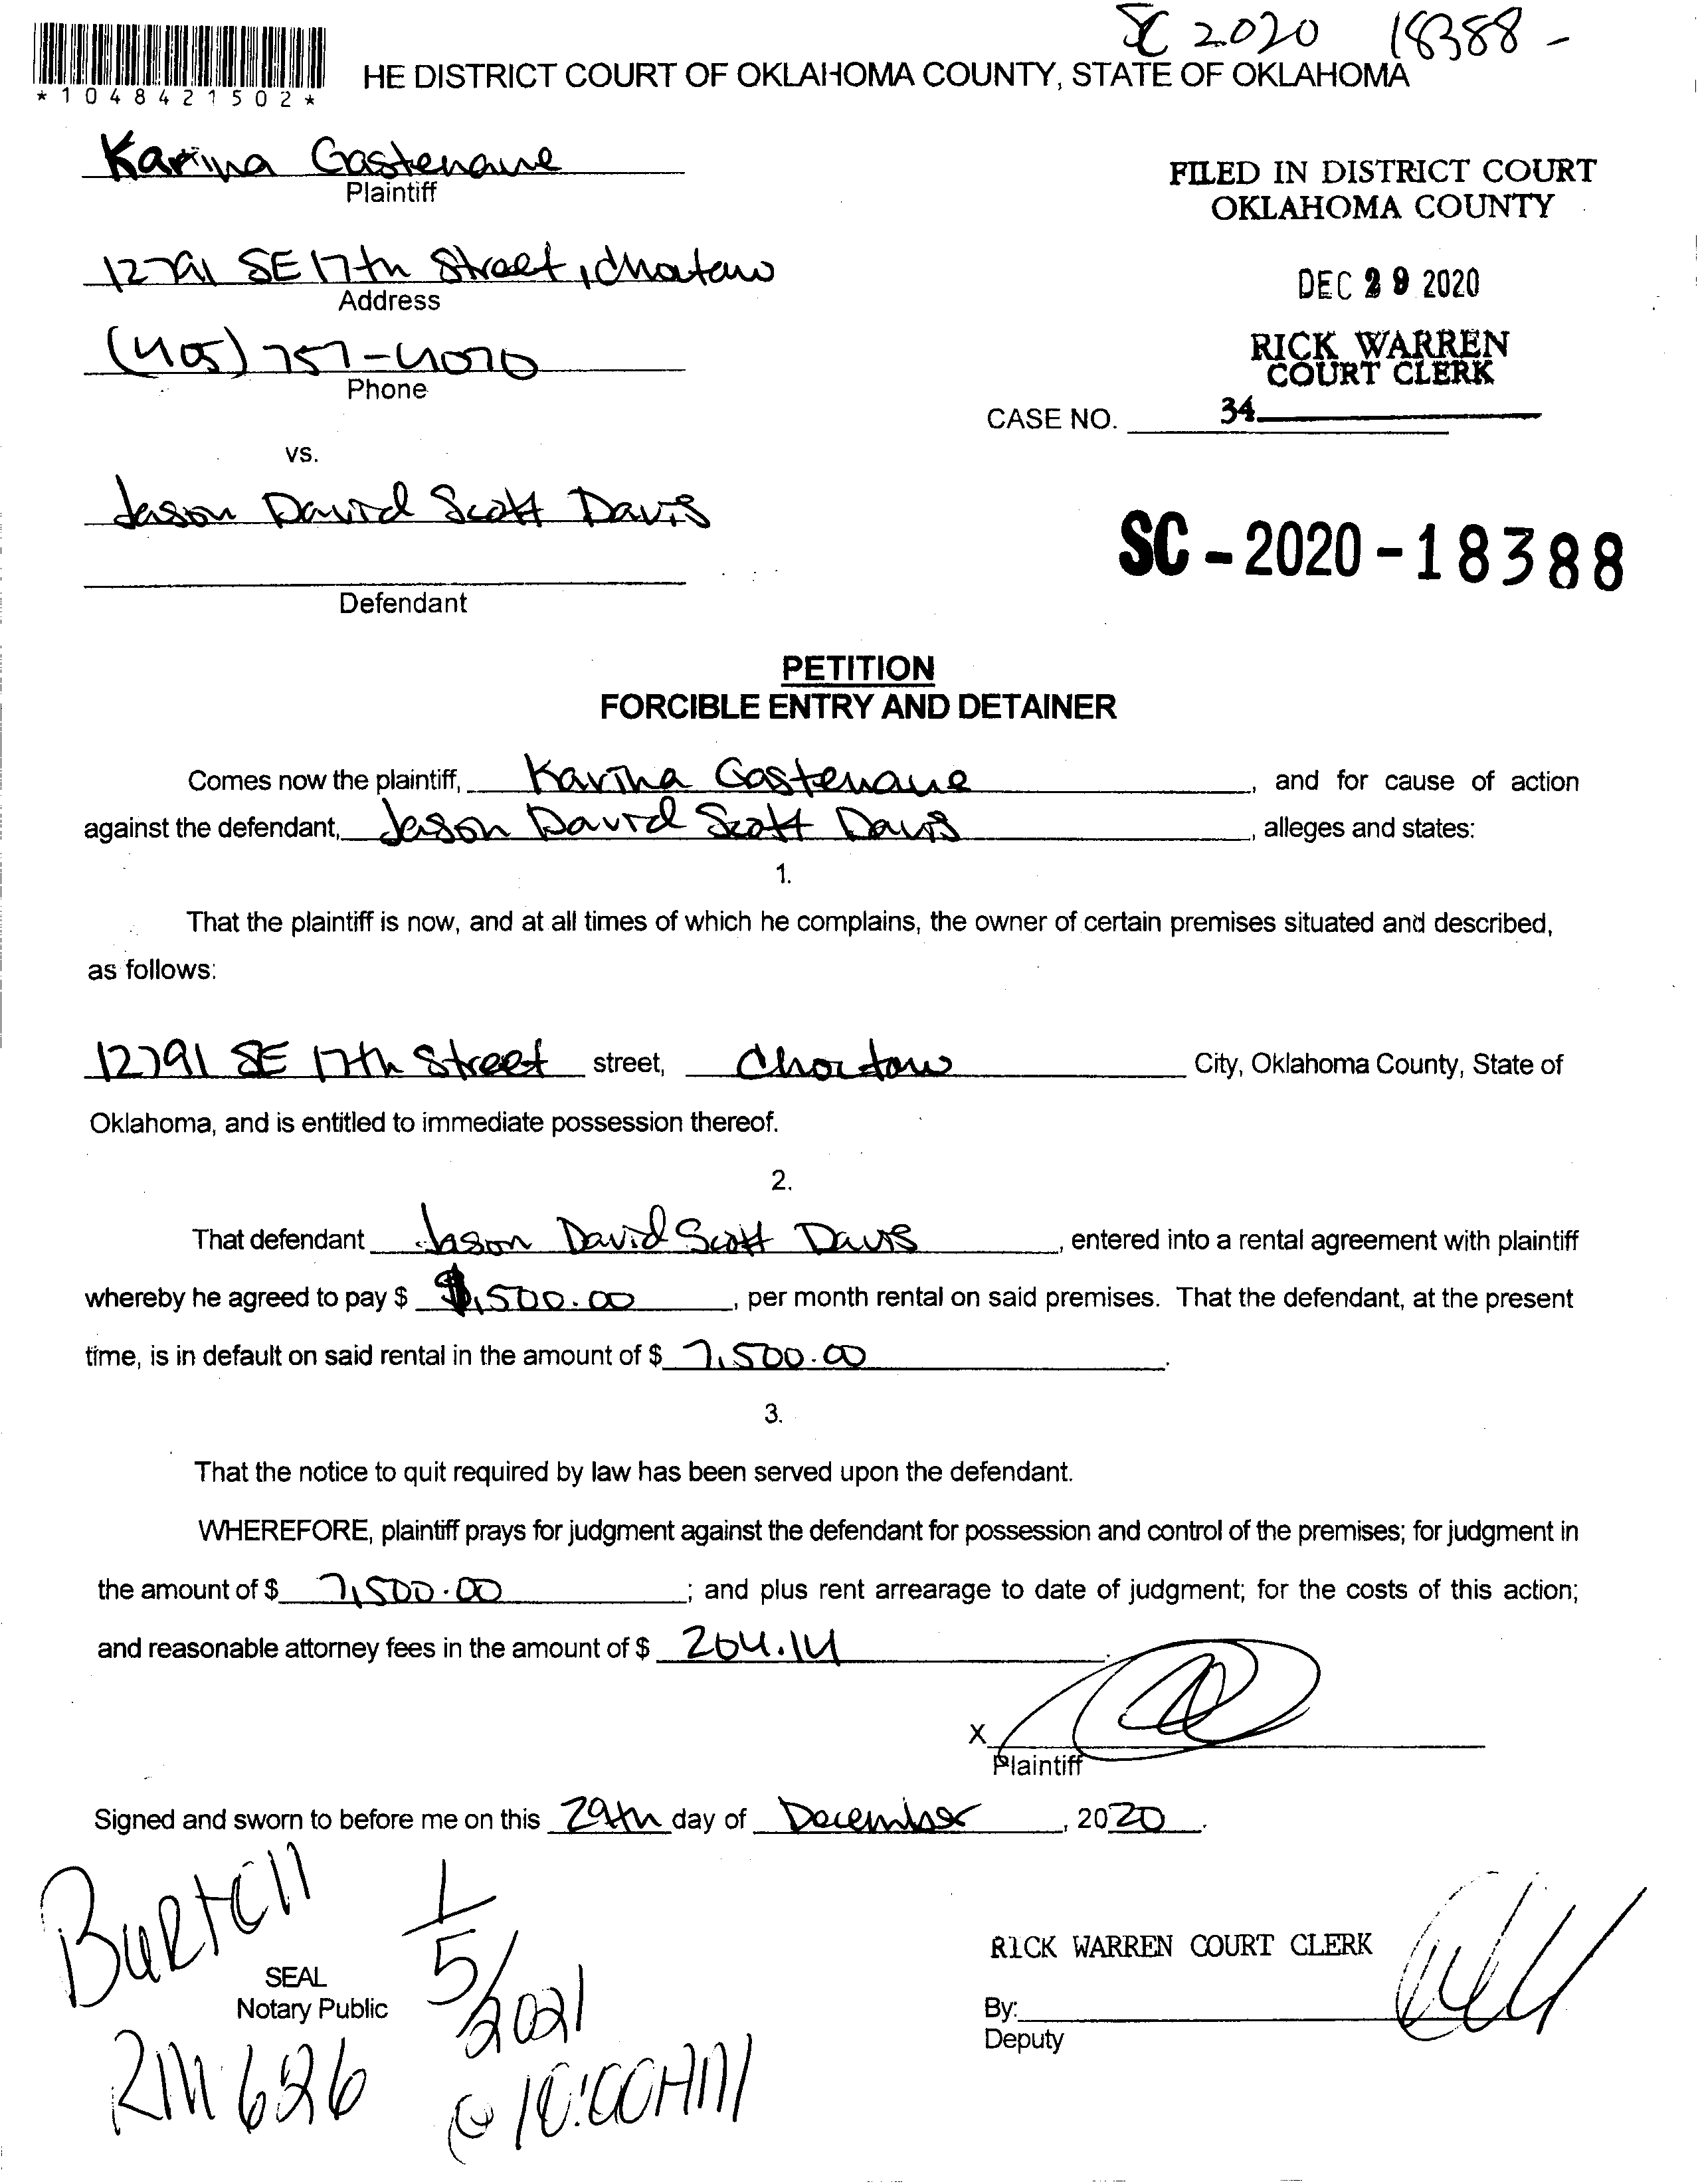 SC 2020 18388 -
*1048421502*
HE DISTRICT COURT OF OKLAHOMA COUNTY, STATE OF OKLAHOMA
Karina
Plaintiff
FILED IN DISTRICT COURT
OKLAHOMA COUNTY
12791 SE 17th Street, Choctaw
Address
DEC 29 2020
(405) 757-4070
Phone
RICK WARREN
COURT CLERK
CASE NO. 34
vs.
Jason David Scott Davis
SC-2020-18388
Defendant
PETITION
FORCIBLE ENTRY AND DETAINER
Comes now the plaintiff, Karina , and for cause of action
against the defendant, Jason David Scott Davis , alleges and states:
1.
That the plaintiff is now, and at all times of which he complains, the owner of certain premises situated and described,
as follows:
12791 SE 17th Street street, Choctaw City, Oklahoma County, State of
Oklahoma, and is entitled to immediate possession thereof.
2.
That defendant Jason David Scott Davis , entered into a rental agreement with plaintiff
whereby he agreed to pay $ 1,500.00 , per month rental on said premises. That the defendant, at the present
time, is in default on said rental in the amount of $ 7,500.00 .
3.
That the notice to quit required by law has been served upon the defendant.
WHEREFORE, plaintiff prays for judgment against the defendant for possession and control of the premises; for judgment in
the amount of $ 7,500.00 ; and plus rent arrearage to date of judgment; for the costs of this action;
and reasonable attorney fees in the amount of $ 264.14 .
X
Plaintiff
Signed and sworn to before me on this 29th day of December , 2020 .
Burtell
1/5/2021
RICK WARREN COURT CLERK
SEAL
Notary Public
By:
Deputy
RM 626
@ 10:00AM